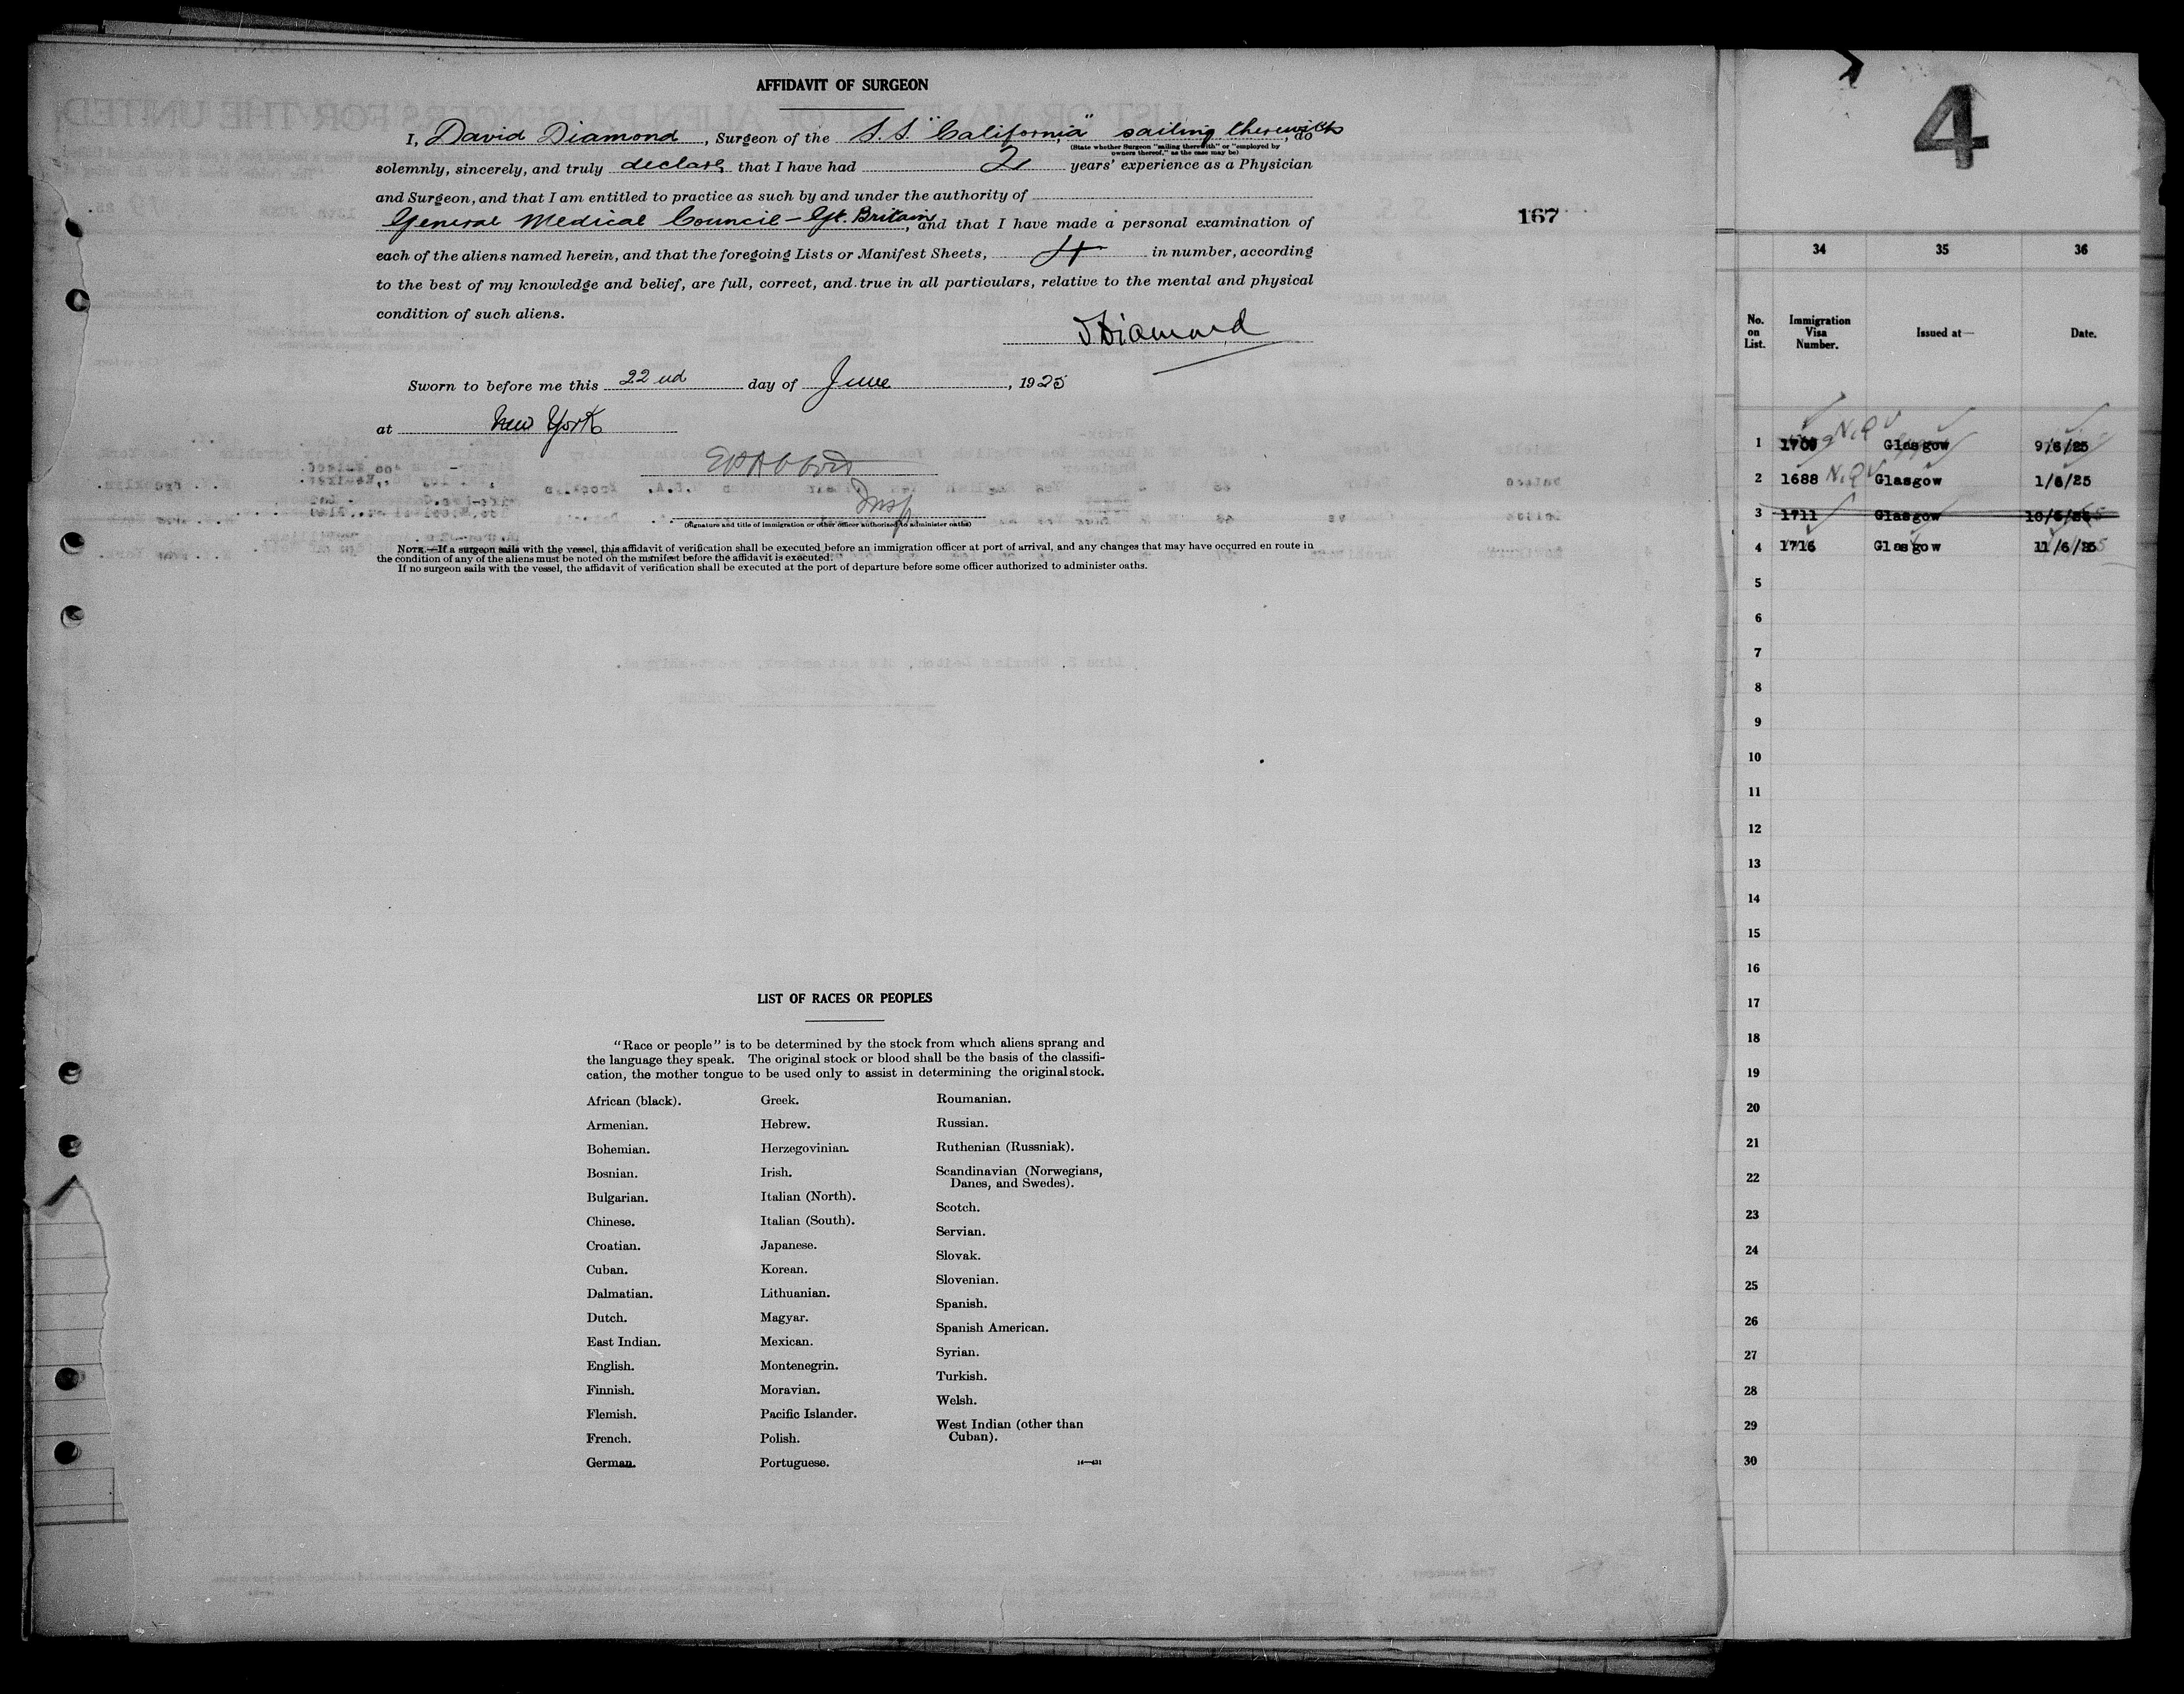 AFFIDAVIT OF SURGEON
I, David Diamond, Surgeon of the S.S. "California," sailing therewith, do
(State whether Surgeon "sailing therewith" or "employed by
owners thereof," as the case may be)
solemnly, sincerely, and truly declare that I have had 2 years' experience as a Physician
and Surgeon, and that I am entitled to practice as such by and under the authority of
General Medical Council – Gt. Britain, and that I have made a personal examination of
each of the aliens named herein, and that the foregoing Lists or Manifest Sheets, 4 in number, according
to the best of my knowledge and belief, are full, correct, and true in all particulars, relative to the mental and physical
condition of such aliens.
DDiamond
Sworn to before me this 22nd day of June, 1925
at New York
Insp
(Signature and title of immigration or other officer authorized to administer oaths)
NOTE.—If a surgeon sails with the vessel, this affidavit of verification shall be executed before an immigration officer at port of arrival, and any changes that may have occurred en route in
the condition of any of the aliens must be noted on the manifest before the affidavit is executed.
If no surgeon sails with the vessel, the affidavit of verification shall be executed at the port of departure before some officer authorized to administer oaths.
167
LIST OF RACES OR PEOPLES
"Race or people" is to be determined by the stock from which aliens sprang and
the language they speak. The original stock or blood shall be the basis of the classifi-
cation, the mother tongue to be used only to assist in determining the original stock.
African (black).
Armenian.
Bohemian.
Bosnian.
Bulgarian.
Chinese.
Croatian.
Cuban.
Dalmatian.
Dutch.
East Indian.
English.
Finnish.
Flemish.
French.
German.
Greek.
Hebrew.
Herzegovinian.
Irish.
Italian (North).
Italian (South).
Japanese.
Korean.
Lithuanian.
Magyar.
Mexican.
Montenegrin.
Moravian.
Pacific Islander.
Polish.
Portuguese.
Roumanian.
Russian.
Ruthenian (Russniak).
Scandinavian (Norwegians,
Danes, and Swedes).
Scotch.
Servian.
Slovak.
Slovenian.
Spanish.
Spanish American.
Syrian.
Turkish.
Welsh.
West Indian (other than
Cuban).
14—431
4
34 35 36
No. on List. Immigration Visa Number. Issued at— Date.
1 1709 N.Q.V Glasgow 9/6/25
2 1688 N.Q.V Glasgow 1/6/25
3 1711 Glasgow 10/6/25
4 1716 Glasgow 11/6/25
5
6
7
8
9
10
11
12
13
14
15
16
17
18
19
20
21
22
23
24
25
26
27
28
29
30